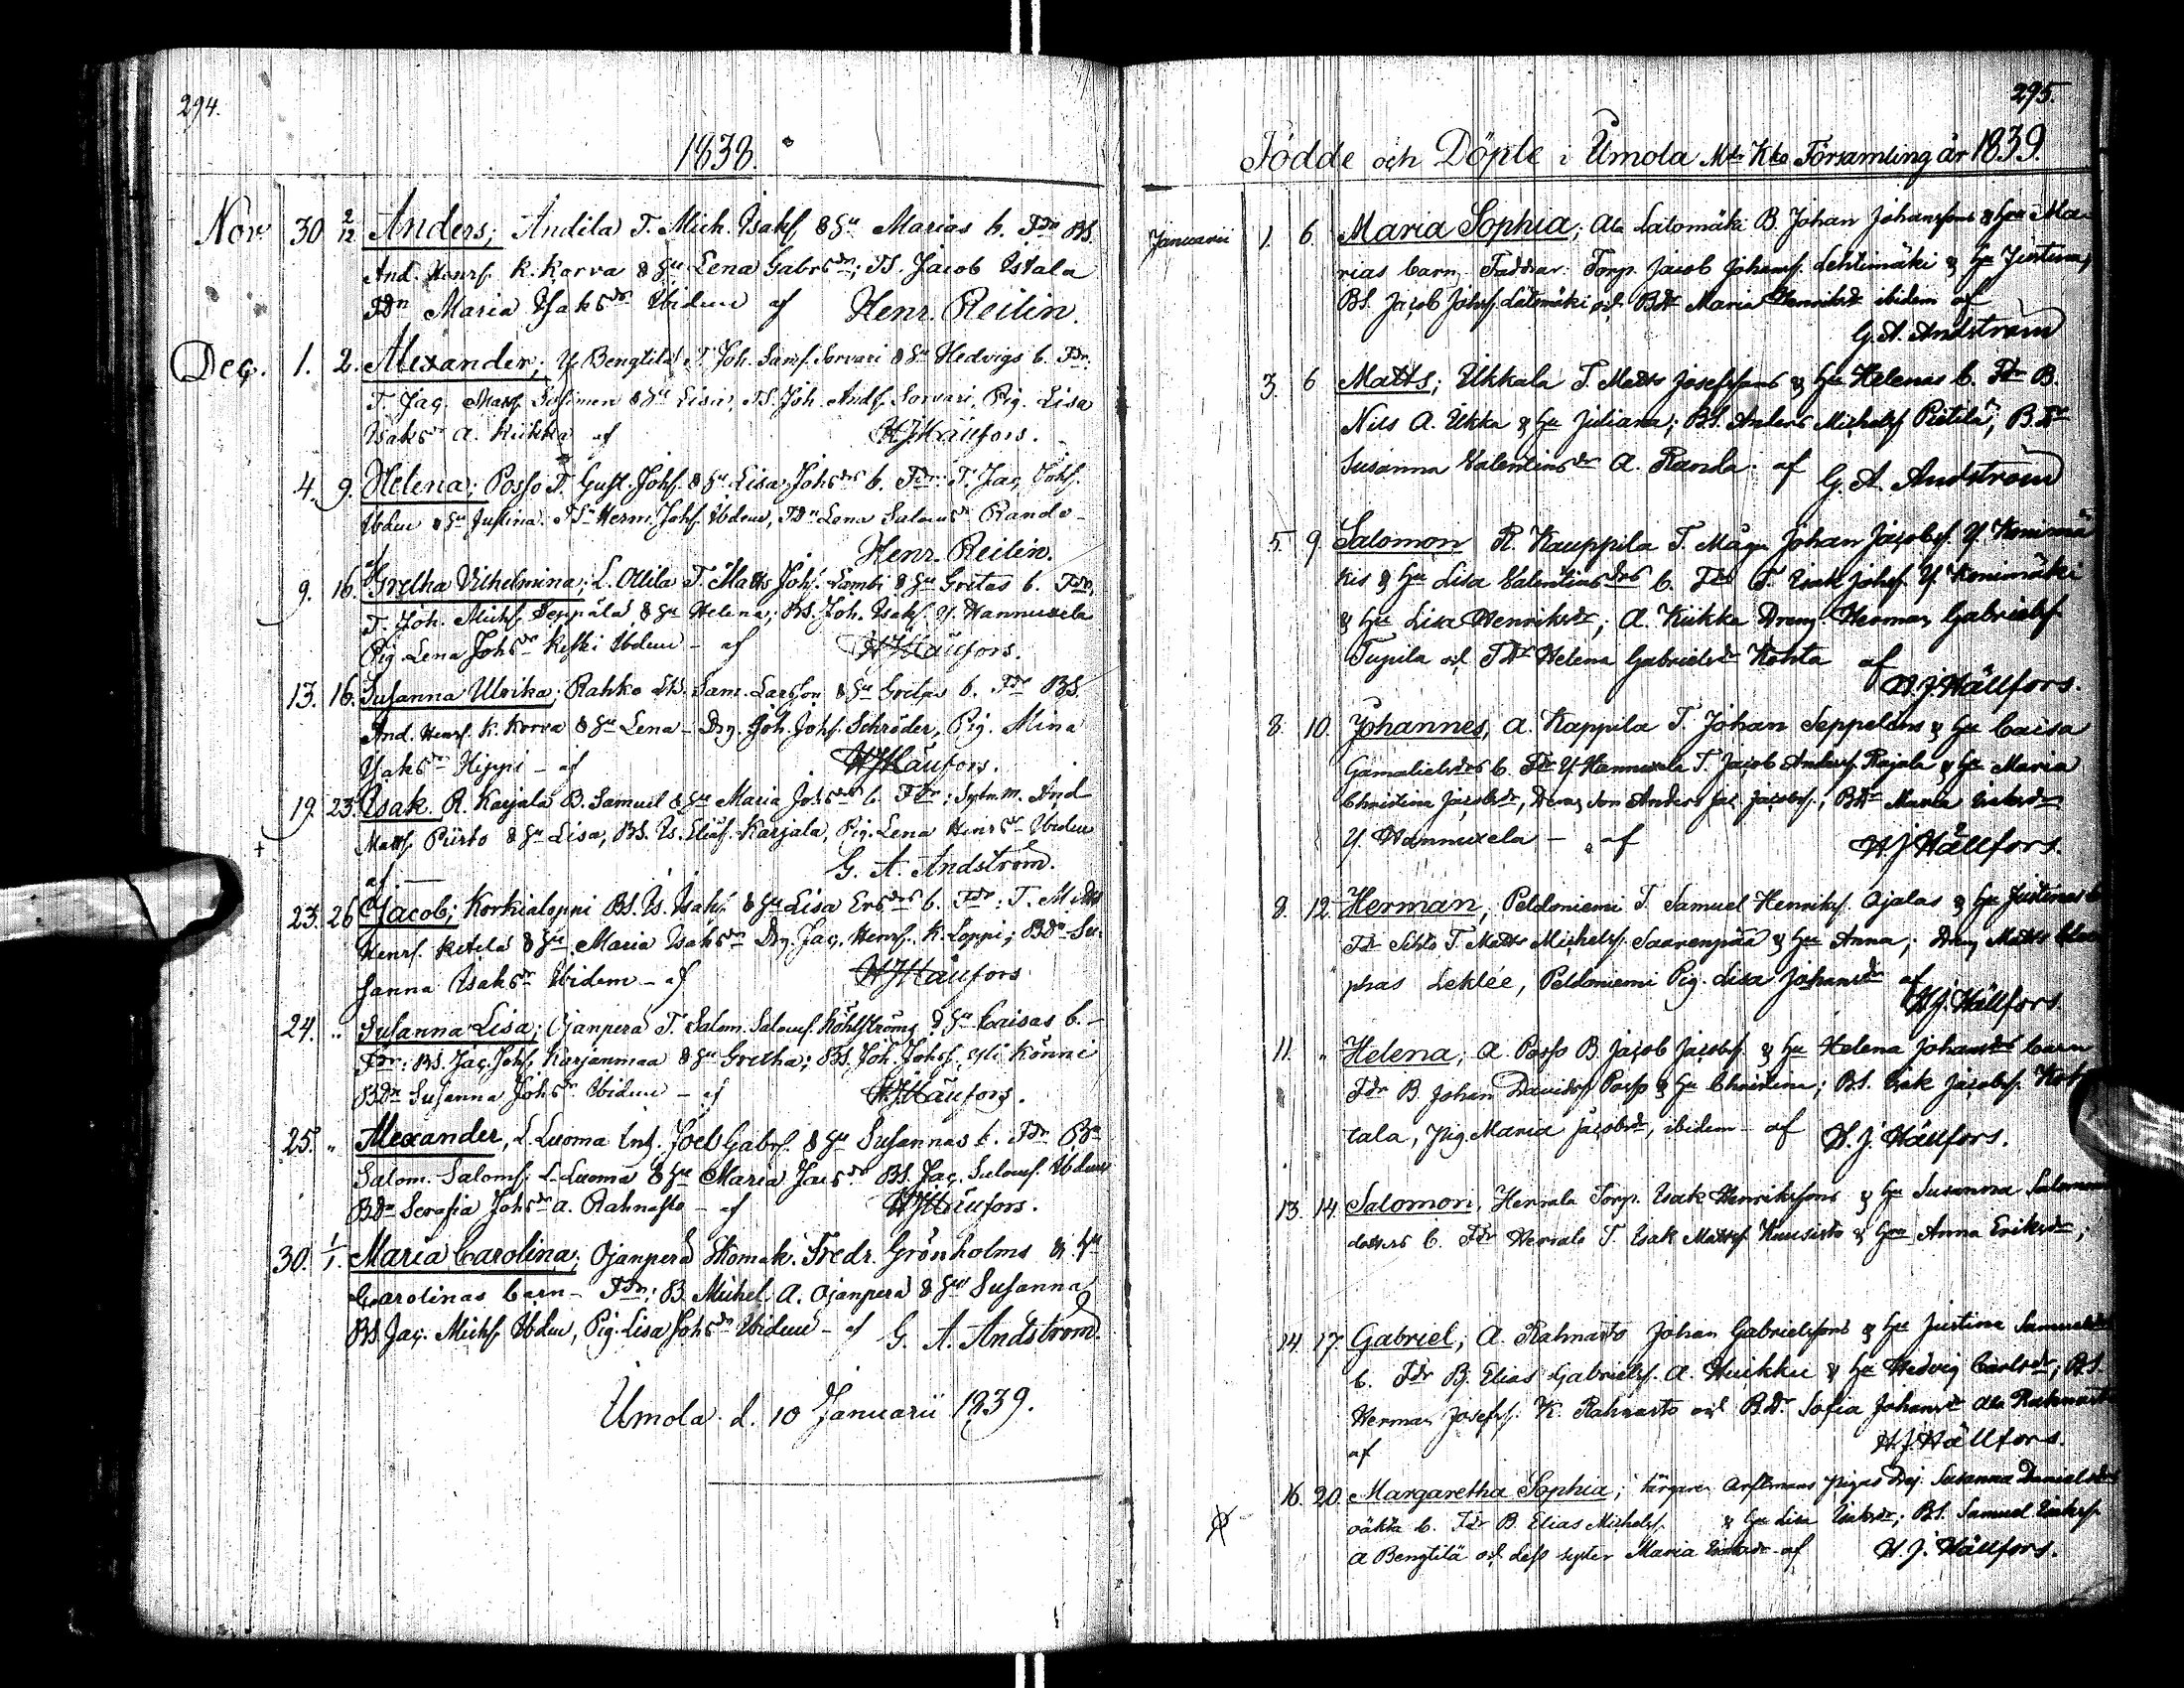 294.
1838.
Nov. 30 2/12 Anders; Andila T. Mich. Isaks. & Hu Marias b. Fdr BS.
And. Henrs. K. Korva & Hu Lena Gabrsdr; TS. Jacob Ustala
TDr Maria Isaksdr Ibidem af Henr. Reilin.
Dec. 1. 2. Alexander; Y. Bengtilä T. Joh. Sams. Sorvari & Hu Hedvigs b. Fdr.
T. Jac. Matts. & Hu Lisa, TS. Joh. Ands. Sorvari, Pig. Lisa
Isaksdr A. Kiikka af HJHällfors.
4. 9. Helena; Posso T. Gust. Johs. & Hu Lisa Johsdrs b. Fdr: T. Jac. Johs.
Ibdem & Hu Justina. TSn Herm. Johs. Ibdem, TDr Lena Salomsdr Rando
af Henr. Reilin.
9. 16. Gretha Vilhelmina; L. Ollila T. Matts Johs. Lambi & Hu Gretas b. Fdr.
T. Joh. Michs. Seppälä & Hu Helena; BS. Joh. Isaks. Y. Hannuxela
Pig. Lena Johsdr Ibdem - af HJHällfors.
13. 16. Susanna Ulrika; Rahko Sam. Larsson & Hu Gretas b. Fdr BS.
And. Henrs. K. Korva & Hu Lena - Drg. Joh. Johs. Schröder, Pig. Mina
Isaksdr Hippi - af HJHällfors.
19. 23. Isak. R. Karjala B. Samuel & Hu Maria Johsdrs b. Fdr: Sytn.m. And
Matts. Piirto & Hu Lisa, BS. Is. Elias. Karjala, Pig. Lena Henrsdr Ibdem
af. G. A. Andström.
23. 26 Jacob; Korkialoppi BS. Is. Isaks. & Hu Lisa Ersdrs b. Fdr: T. Matts
Henrs. Ketela & Hu Maria Isaksdr Drg. Jac. Henrs. K. Loppi; BDr Su-
sanna Isaksdr Ibidem - af HJHällfors
24. " Susanna Lisa; Ojanperä T. Salom. Saloms. Köhlströms & Hu Caisas b. -
Fdr: BS. Jac. Johs. Karjanmaa & Hu Gretha; BS. Joh. Johs. Yli Könni
BDr Susanna Johsdr Ibidem - af HJHällfors.
25. " Alexander, L. Luoma Inh. Joel Gabrs. & Hu Susannas b. Fdr Bn
Salom. Saloms. L. Luoma & Hu Maria BS. Jac. Saloms. Ibdem
BDr Serafia Johsdr A. Rahnasto - af HJHällfors.
30. 1/1. Maria Carolina; Ojanperä Skomak. Fredr. Grönholms & Hu
Carolinas barn - Fdr: B. Michel A. Ojanperä & Hu Susanna
BS. Jac. Michs. Ibdem, Pig. Lisa Johsdr Ibidem - af G. A. Andström.
Umola d. 10 Januarii 1839.
295.
Födde och Döpte i Umola Församling år 1839.
Januarii 1. 6. Maria Sophia; Ala Latomäki B. Johan Johanssons & Hu Ma-
rias barn. Faddrar: Torp. Jacob Johanss. Lehtimäki & Hu Justina;
BS. Jacob Johss. Latomäki och BDr Maria Henriksdr ibidem af
G. A. Andström
3. 6 Matts; Ukkala T. Matts Josefssons & Hu Helenas b. Fdr B.
Nils A. Ukka & Hu Juliana; BS. Anders Michelss. Pietilä; B.Dr
Susanna Valentinsdr A. Randa. af G. A. Andström
5. 9. Salomon R. Kauppila T. Måg. Johan Jacobss. Y. Konimä-
kis & Hu Lisa Valentinsdrs b. Fdr T. Isak Johss. Y. Konimäki
& Hu Lisa Henriksdr; A. Kiikka Dreng Herman Gabrielss.
Tupila och TDr Helena Gabrielsdr Kohta af
H. J. Hällfors.
8. 10. Johannes, A. Kappila T. Johan Seppeläns & Hu Caisa
Gamalielsdrs b. Fdr Y. Hannuxela T. Jacob Anderss. Rajala & Hu Maria
Christina Jacobsdr, Dreng Son Anders Jac. Jacobss.; BDr Maria Isaksdr
Y. Hannuxela - af H J Hällfors.
8. 12. Herman; Peldoniemi T. Samuel Henrikss. Ojalas & Hu Justinas b
Fdr T. Matts Michelss. Saarenpää & Hu Anna; Dreng Matts Cleo-
phas Leklée, Peldoniemi Pig. Lisa Johansdr af
H J. Hällfors.
11. " Helena; A. Posso B. Jacob Jacobss. & Hu Helena Johansdrs barn
Fdr B. Johan Davidss. Posso & Hu Christina; BS. Isak Jacobss.
tala, Pig. Maria Jacobsdr, ibidem - af H. J. Hällfors.
13. 14. Salomon, Herrala Torp. Isak Henrikssons & Hu Susanna Salomons
dotters b. Fdr Herrala T. Isak Mattss. Kuusisto & Hu Anna Eriksdr;
14. 17. Gabriel; A. Rahnasto Johan Gabrielssons & Hu Justina Samuelsdrs
b. Fdr B. Elias Gabrielss. A. Huikku & Hu Hedvig Carlsdr; BS.
Herman Josefss. K. Rahnasto och BDr Sofia Johansdr Ala Rahnasto
af H. J. Hällfors.
16. 20. Margaretha Sophia; färgare Pigas Susanna Danielsdrs
oäkta b. Fdr B. Elias Michelss. & Hu Lisa Isaksdr; BS. Samuel Isakss.
A Bengtilä och dess syster Maria Isaksdr af H. J. Hällfors.